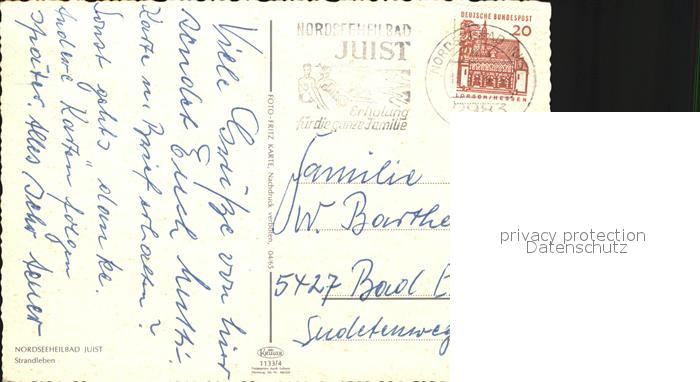 Viele Grüße von hier
sendet Euch Mutti.
Karte m. Brief erhalten?
Sonst geht's danke.
Andere Karten folgen
später. Alles sehr teuer
NORDSEEHEILBAD JUIST
Strandleben
FOTO-FRITZ KARTE, Nachdruck verboten, 04/65
Krüger
1133/4
NORDSEEHEILBAD
JUIST
Erholung
für die ganze Familie
DEUTSCHE BUNDESPOST
20
LORSCH/HESSEN
2983
Familie
W. Barthe
5427 Bad E
Sudetenweg
privacy protection
Datenschutz